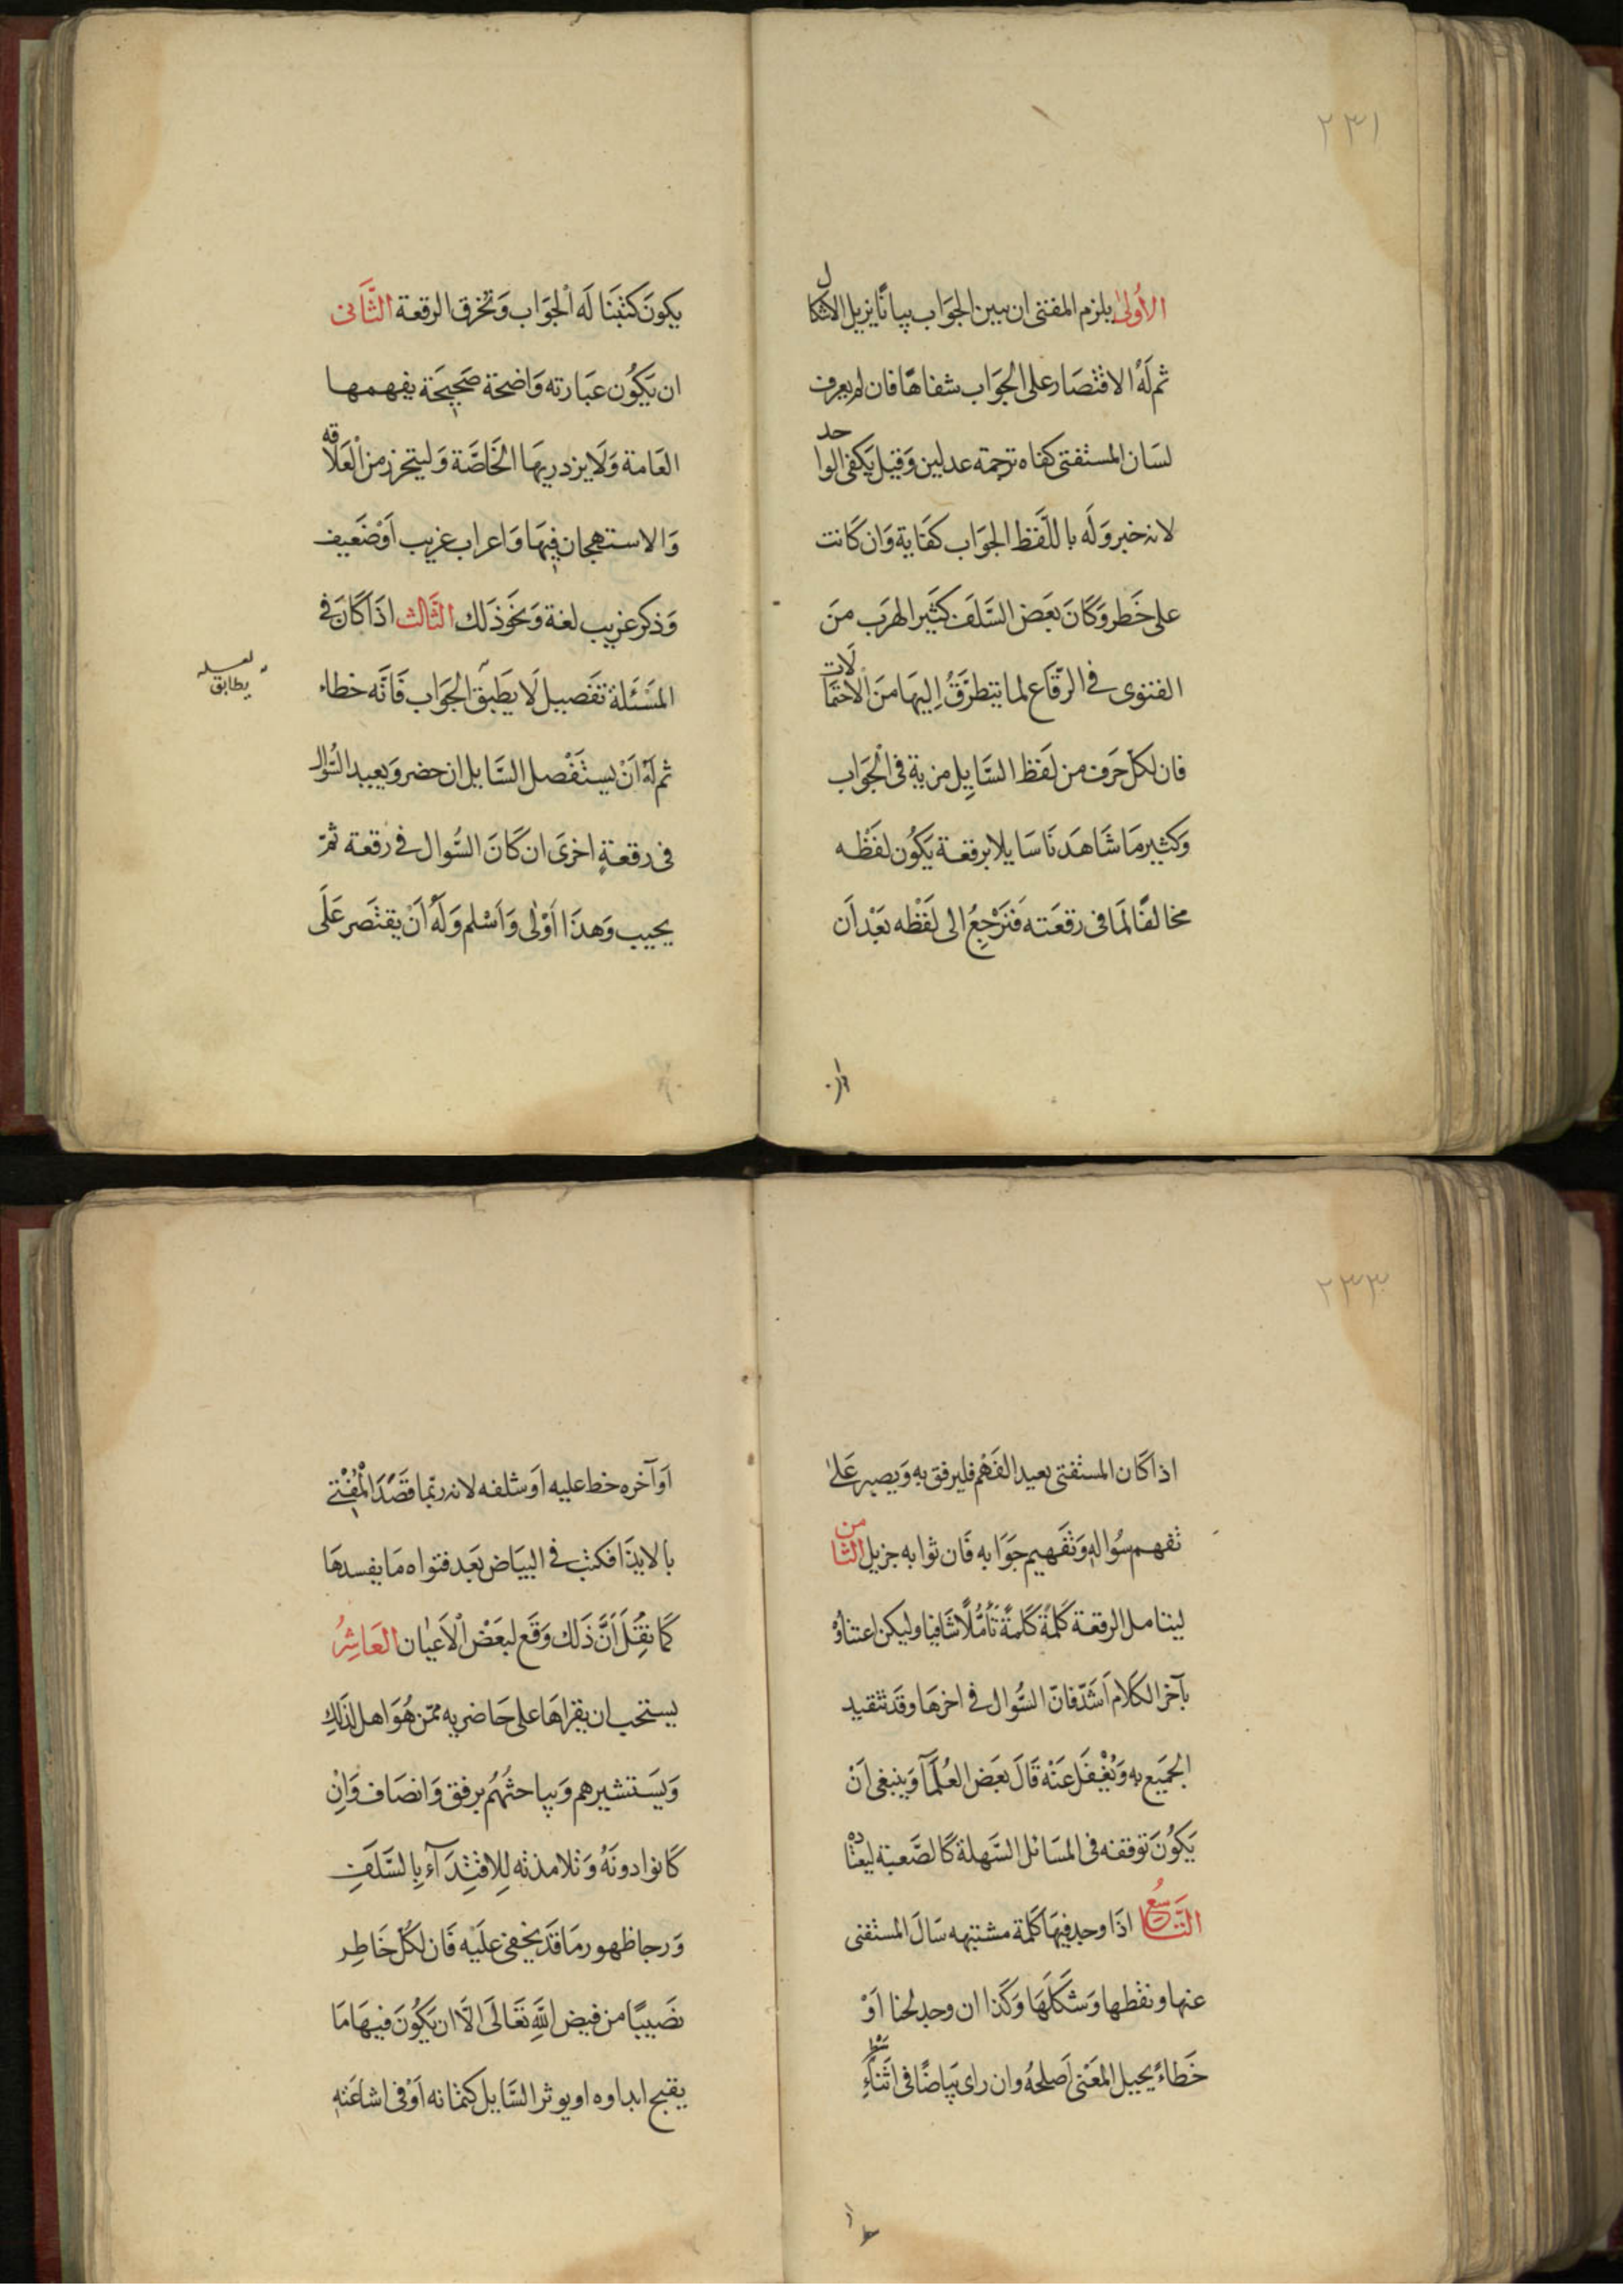 ٢٣١
الأولى يلزم المفتى ان يبين الجَوَاب بيانًا يزيل الاشكال
ثم لَهُ الاقتصَار على الجَوَاب شفاهًا فان لم يعرف
لسَان المستفتى كفاه ترجمة عدلين وَقيل يَكفى الواحد
لانه خبر وَلَه با للّفظ الجوَاب كفَاية وَان كَانت
على خَطر وَكَانَ بعَض السَّلَف كثَير الهرَب منَ
الفتوى في الرِّقَاع لما يتطرَّقُ إليهَا منَ الاحتمَالَات
فان لكلّ حَرَف من لَفظ السَّايِل مزية فى الْجَوَاب
وَكثير مَا شَاهَدنَا سَايلا برقعة يَكُون لفَظْه
مخالفًا لمَا فى رقعَته فَنَرْجِعُ الى لَفْظه بَعْد أَن
يكونَ كتبَنَا لَه الْجَوَاب وَتخرق الرقعة الثَّانى
ان يَكُون عبَارته وَاضحة صَحِيحَة يفهمها
العَامة وَلَا يزدريهَا الخَاصَّة وَليتحرز من الْعَلَاقه
وَالاستهجان فِيهَا وَاعراب غريب أَوْ ضَعيف
وَذكر غريب لغة وَنحَو ذَلك الثَّالث اذَا كَانَ فى
المسَئلة تفَصيل لَا يطَبق الجَوَاب فَانَّه خطاء
لعله يطابق
ثم لَهُ اَنْ يستَفْصل السَّايل ان حضر وَيعيد السُّوال
فى رقعةٍ اخرىَ ان كَانَ السُّوال فى رقعة ثمّ
يجيب وَهذَا أَوْلى وَاَسْلم وَلَهُ اَنْ يقتَصر عَلَى
٢٣٣
اذا كَان المستفتى بعيد الفَهْم فليرفق به وَيصبر عَلىٰ
تفهم سُواله وَتفَهيم جَوَابه فَان ثوابه جزيل الثامن
ليتامل الرقعة كَلمَة كَلمَةً تَأَمُّلًا شَافيا وليكن اعتناؤهُ
بآخر الكَلام اَشدّ فانّ السُّوال فى اخرهَا وقد تتقيد
الجَميَع به وَيُغْفَل عَنْه قَالَ بعَض العُلَمَآ وَينبغى اَنْ
يَكُونَ توقفه فى المسَائل السَّهلة كَالصَّعبة ليعتاده
التَاسعُ اذَا وجد فيهَا كَلمة مشتبهه سَالَ المستفتى
عنها ونقطها وَشَكلَهَا وَكَذا ان وجد لحنا اَوْ
خَطاءً يحيل المَعْنى اَصلحهُ وان راى بيَاضًا فى اثَنَاءِ سَطر
اوَ آخره خط عليه اوَ شغله لانه ربّما قصَدَ الْمُفْتى
بالايذَا فكتب فى البيَاض بَعَد فتواه مَا يفسدهَا
كَمَا نقُلَ أَنَّ ذَلك وَقَع لبعَضْ الْاَعيٰان العَاشِرُ
يستحَب ان يقراهَا على حَاضريه ممّن هُوَ اهل لذَلكِ
وَيسَتشيرهم وَيباحثهُم برفق وَانصَاف وَاِنْ
كَانوا دونَهُ وَتلامذته لِلاقتِدَآء بِالسَّلَفِ
وَرجا ظهور مَا قَد يخفى علَيْه فَان لكُلّ خَاطِر
نصَيبًا من فيض اللهِ تعَالَى الَّا ان يَكُونَ فيهَا مَا
يقبح ابداوه او يوثر السَّايل كتمانه اَوْ فى اشاعَته